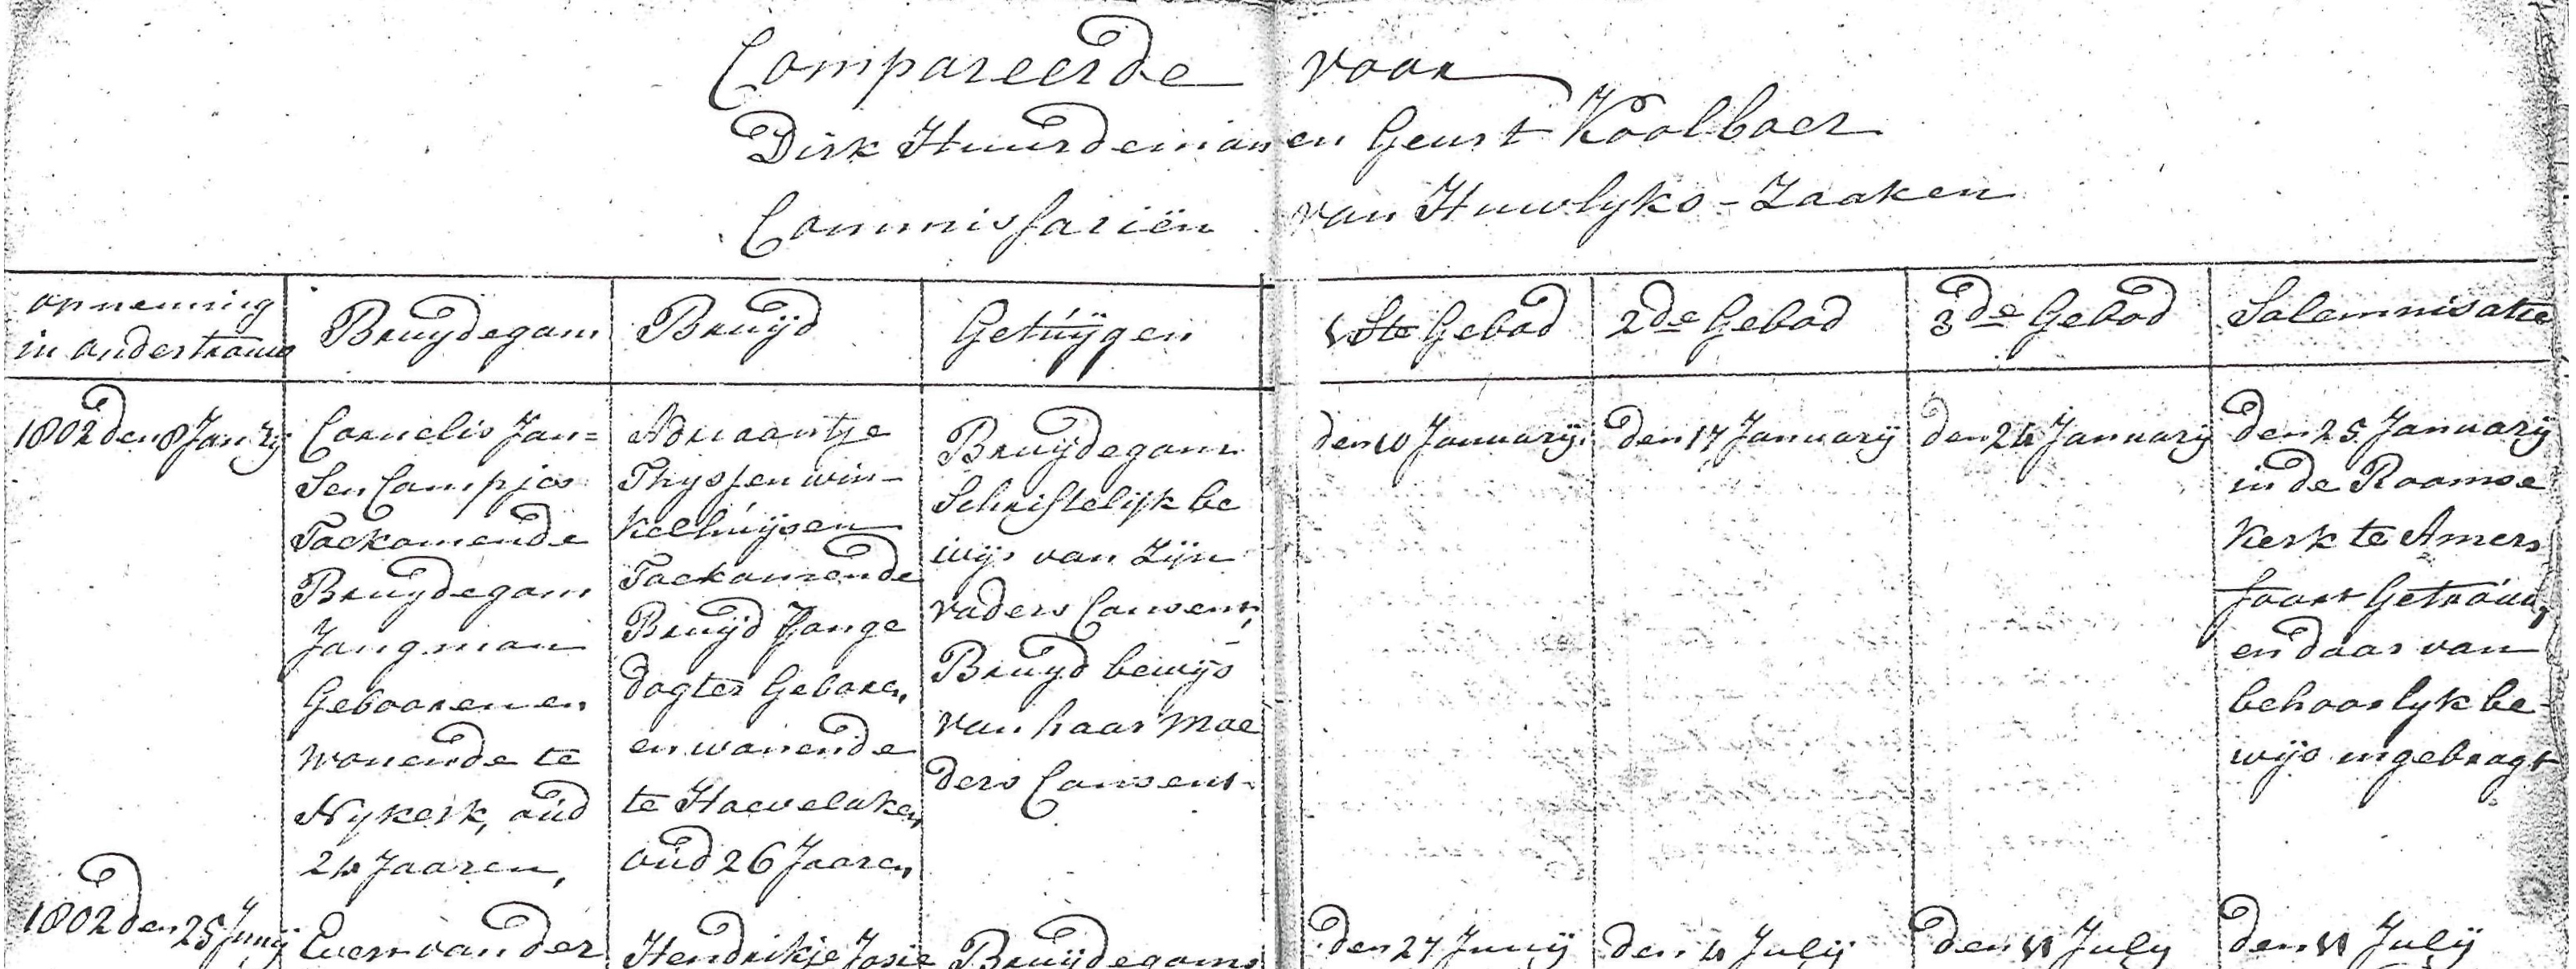 Compareerde voor
Dirk Huurdeman en Geurt Koolbaer
Commissariën van Huwlyks-Zaaken
opneming
in ondertrouw
Bruydegom
Bruijd
Getuÿgen
1ste Gebod
2de Gebod
3de Gebod
Solemnisatie
1802 den 8 Janrij
Cornelis Jan=
Sen Campjes
Toekomende
Bruydegom
Jongman
Gebooren en
wonende te
Nykerk, oud
24 Jaaren,
Adriaantje
Thyssen win-
kelhuÿsen
Toekomende
Bruijd Jonge
dogter Geboren
en wonende
te Hoevelaken
oud 26 Jaaren
Bruijdegom
Schriftelijk be
wijs van Zijn
vaders Consent,
Bruyd bewijs
van haar Moe
ders Consent.
den 10 Januarij.
den 17 Januarij
den 24 Januarij
den 25 Januarij
in de Roomse
Kerk te Amers
foort Getrouwd,
en daar van
behoorlyk be-
wijs ingebragt
1802 den 25 Junij
Evert van der
Hendrikje
Bruijdegoms
den 27 Junij
den 4 Julij
den 11 July
den 11 Julij